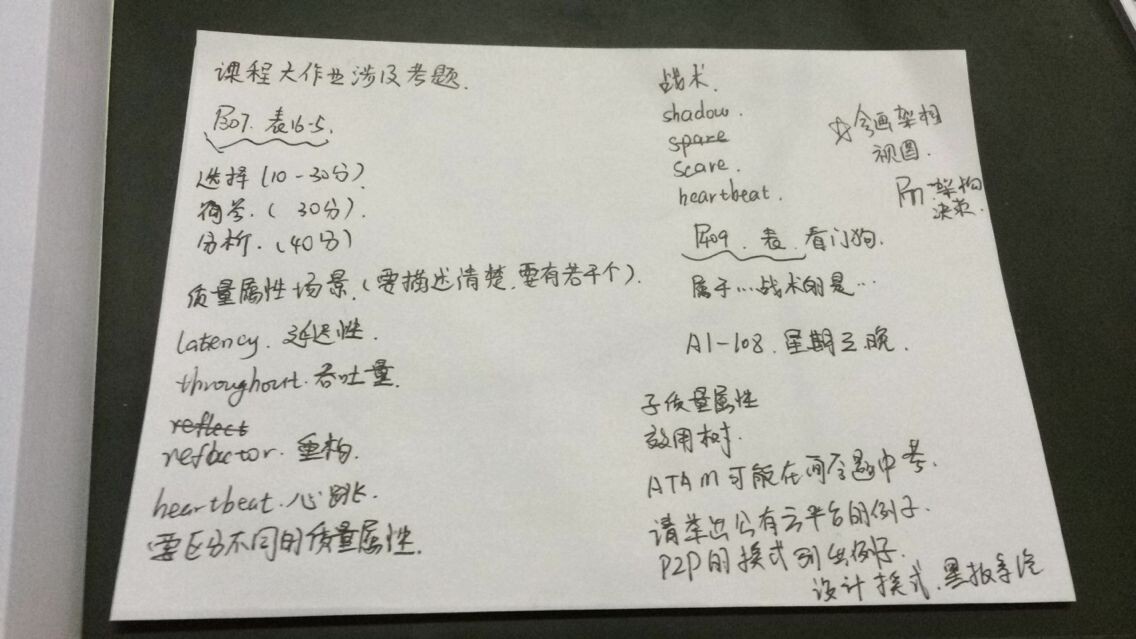 课程大作业涉及考题.
P307. 表16-5.
选择(10-30分)
简答.(30分).
分析.(40分)
质量属性场景.(要描述清楚.要有若干个).
latency. 延迟性.
throughout. 吞吐量.
reflect
refactor. 重构.
heartbeat. 心跳.
要区分不同的质量属性.
战术.
shadow.
spare
scare.
heartbeat.
☆会画架构
视图.
架构
决策.
P409. 表. 看门狗.
属于...战术的是...
A1-108. 星期三晚.
子质量属性
效用树.
ATAM可能在简答题中考.
请举出公有云平台的例子.
P2P的模式列出例子.
设计模式.黑板系统